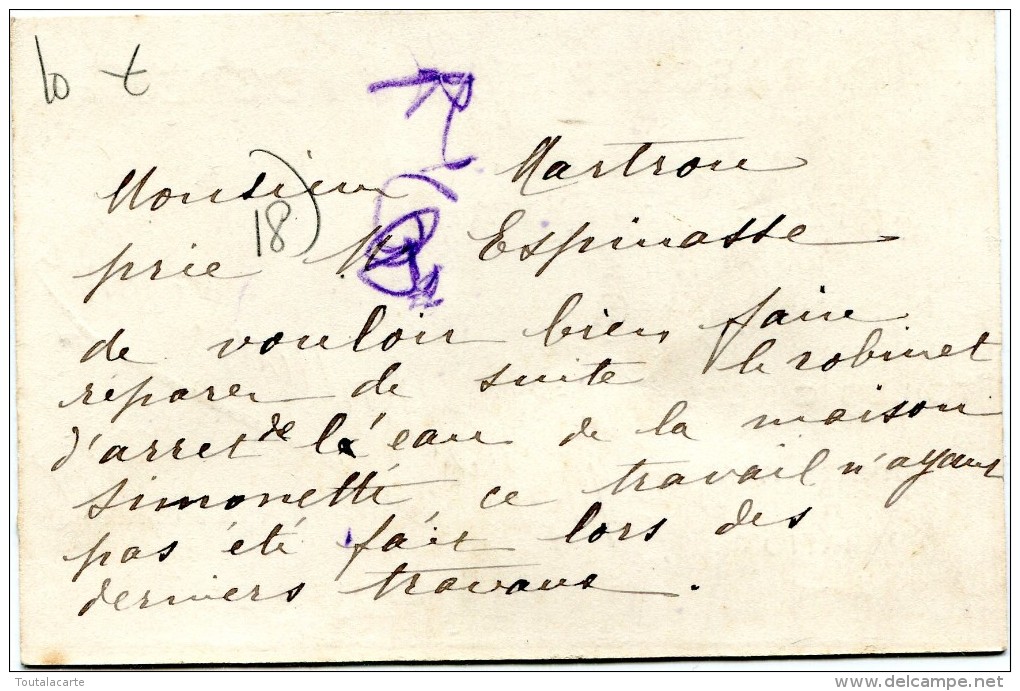 10 t
Monsieur Martrou
18)
prie Mr Espinasse
de vouloir bien faire
réparer de suite le robinet
d'arret de l'eau de la maison
Simonetti ce travail n'ayant
pas été fait lors des
derniers travaux.
Toutalacarte
www.delcampe.net